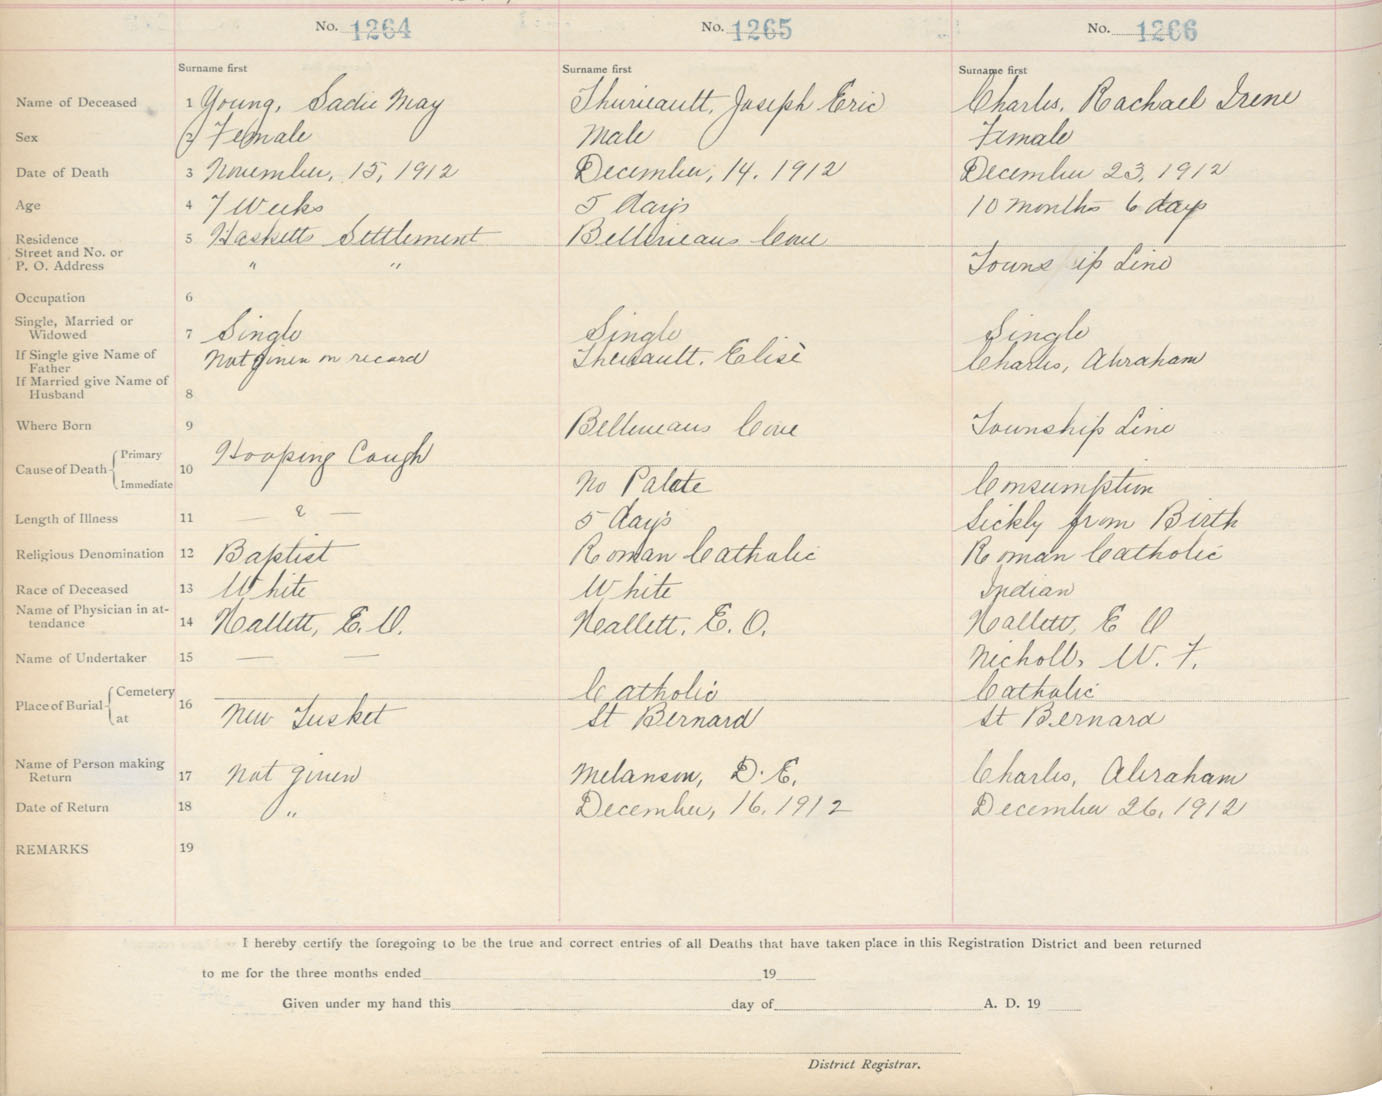 No. 1264 No. 1265 No. 1266
Surname first Surname first Surname first
Name of Deceased 1 Young, Sadie May Thurieault, Joseph Eric Charles, Rachael Irene
Sex 2 Female Male Female
Date of Death 3 November, 15, 1912 December, 14. 1912 December 23, 1912
Age 4 7 Weeks 5 days 10 months 6 days
Residence 5 Hasketts Settlement Belliveaus Cove
Street and No. or
P. O. Address " " Township Line
Occupation 6
Single, Married or
Widowed 7 Single Single Single
If Single give Name of
Father Not given on record Theriault, Elisè Charles, Abraham
If Married give Name of
Husband 8
Where Born 9 Belliveaus Cove Township Line
Cause of Death Primary 10 Hooping Cough
Immediate No Palate Consumption
Length of Illness 11 — ? — 5 days Sickly from Birth
Religious Denomination 12 Baptist Roman Catholic Roman Catholic
Race of Deceased 13 White White Indian
Name of Physician in at-
tendance 14 Hallett, E. O. Hallett, E. O. Hallett, E O
Name of Undertaker 15 — — Nicholl, W. F.
Place of Burial Cemetery 16 Catholic Catholic
at New Tusket St Bernard St Bernard
Name of Person making
Return 17 Not given Melanson, D. E. Charles, Abraham
Date of Return 18 " December, 16, 1912 December 26, 1912
REMARKS 19
I hereby certify the foregoing to be the true and correct entries of all Deaths that have taken place in this Registration District and been returned
to me for the three months ended 19
Given under my hand this day of A. D. 19
District Registrar.